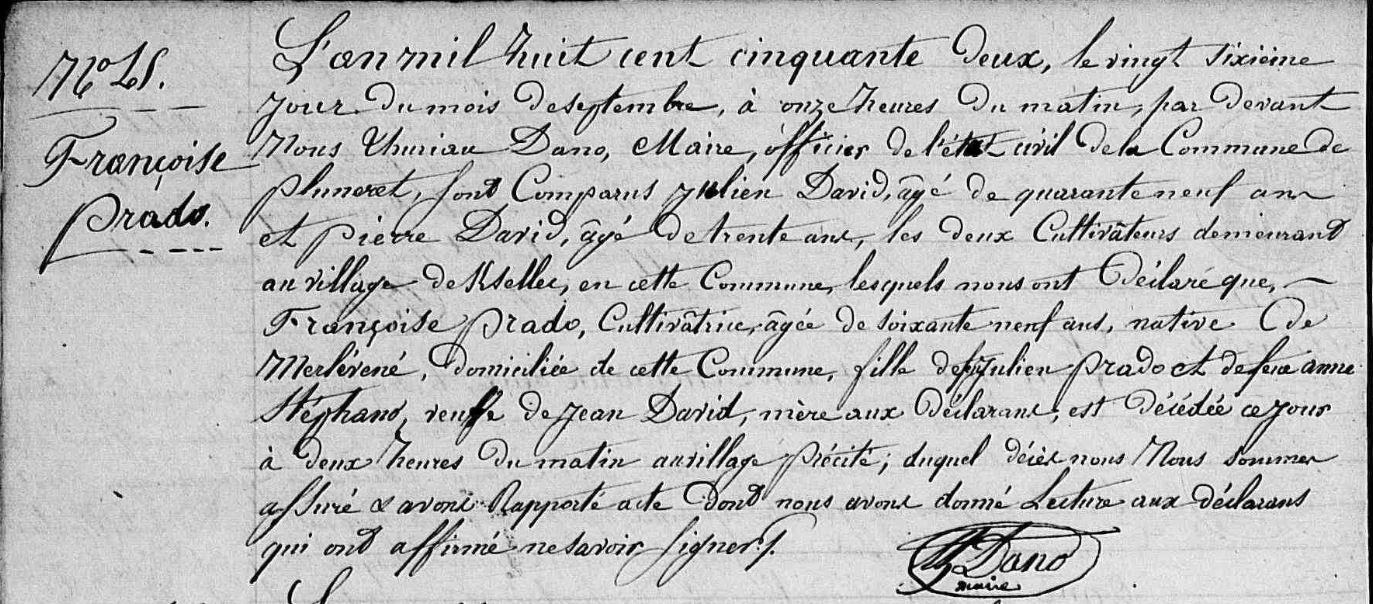 No 45.
Françoise
Prado.
L'an mil huit cent cinquante deux, le vingt sixième
jour du mois de septembre, à onze heures du matin, par devant
Nous Thuriau Dano, Maire, officier de l'état civil de la Commune de
pluneret, sont Comparus Julien David, âgé de quarante neuf ans
et pierre David, âgé de trente ans, les deux Cultivâteurs demeurant
au village de Ksellec, en cette Commune, lesquels nous ont Déclaré que,
Françoise Prado, Cultivâtrice, âgée de soixante neuf ans, native de
Merlévené, domiciliée de cette Commune, fille de Julien prado et de feue anne
Stéphano, veuffe de Jean David, mère aux Déclarans, est Décédée ce jour
à deux heures du matin au village précité; duquel décès nous Nous sommes
assuré & avons Rapporté acte Dont nous avons donné Lecture aux déclarans
qui ont affirmé ne savoir signer.
Th Dano
maire